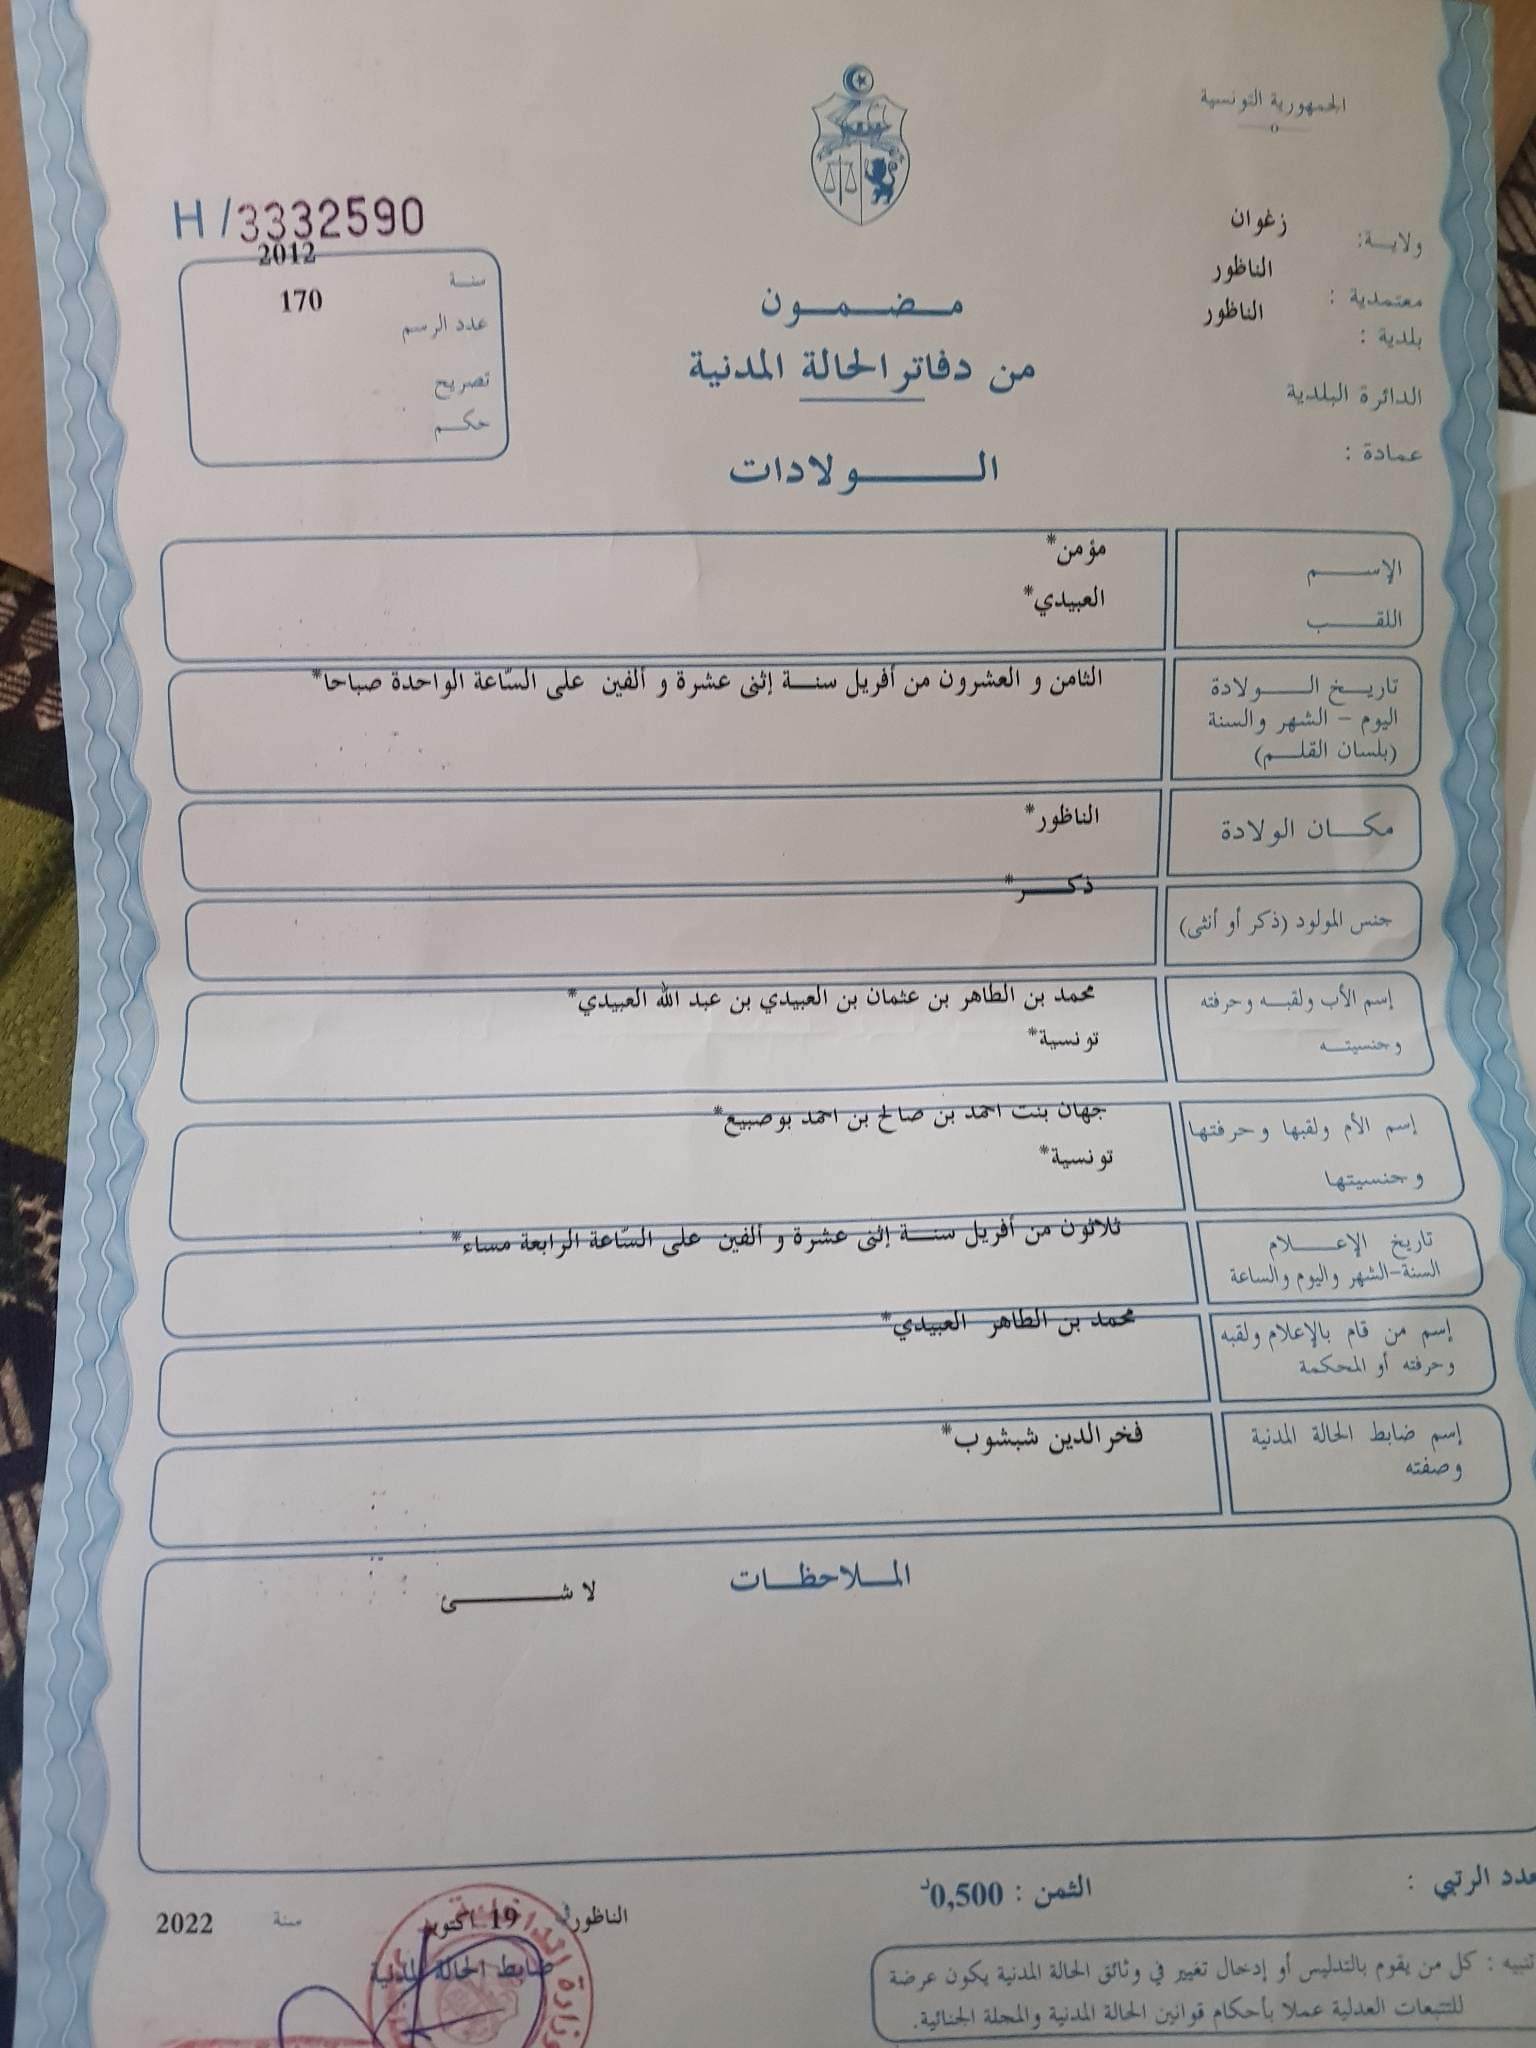 الجمهورية التونسية
H/3332590
ولاية: زغوان
معتمدية : الناظور
بلدية : الناظور
الدائرة البلدية
عمادة :
سنة 2012
عدد الرسم 170
تصريح
حكم
مضمون
من دفاتر الحالة المدنية
الولادات
الإسم مؤمن*
اللقب العبيدي*
تاريخ الولادة الثامن و العشرون من أفريل سنة إثنى عشرة و ألفين على السّاعة الواحدة صباحا*
اليوم - الشهر والسنة
(بلسان القلم)
مكان الولادة الناظور*
جنس المولود (ذكر أو أنثى) ذكر*
إسم الأب ولقبه وحرفته محمد بن الطاهر بن عثمان بن العبيدي بن عبد الله العبيدي*
وجنسيته تونسية*
إسم الأم ولقبها وحرفتها جهان بنت احمد بن صالح بن احمد بوصبيع*
وجنسيتها تونسية*
تاريخ الإعلام ثلاثون من أفريل سنة إثنى عشرة و ألفين على السّاعة الرابعة مساء*
السنة-الشهر واليوم والساعة
إسم من قام بالإعلام ولقبه محمد بن الطاهر العبيدي*
وحرفته أو المحكمة
إسم ضابط الحالة المدنية فخر الدين شبشوب*
وصفته
الملاحظات
لا شئ
عدد الرتبي :
الثمن : 0,500د
الناظور في 19 اكتوبر سنة 2022
ضابط الحالة المدنية
تنبيه : كل من يقوم بالتدليس أو إدخال تغيير في وثائق الحالة المدنية يكون عرضة
للتتبعات العدلية عملا بأحكام قوانين الحالة المدنية والمجلة الجنائية.